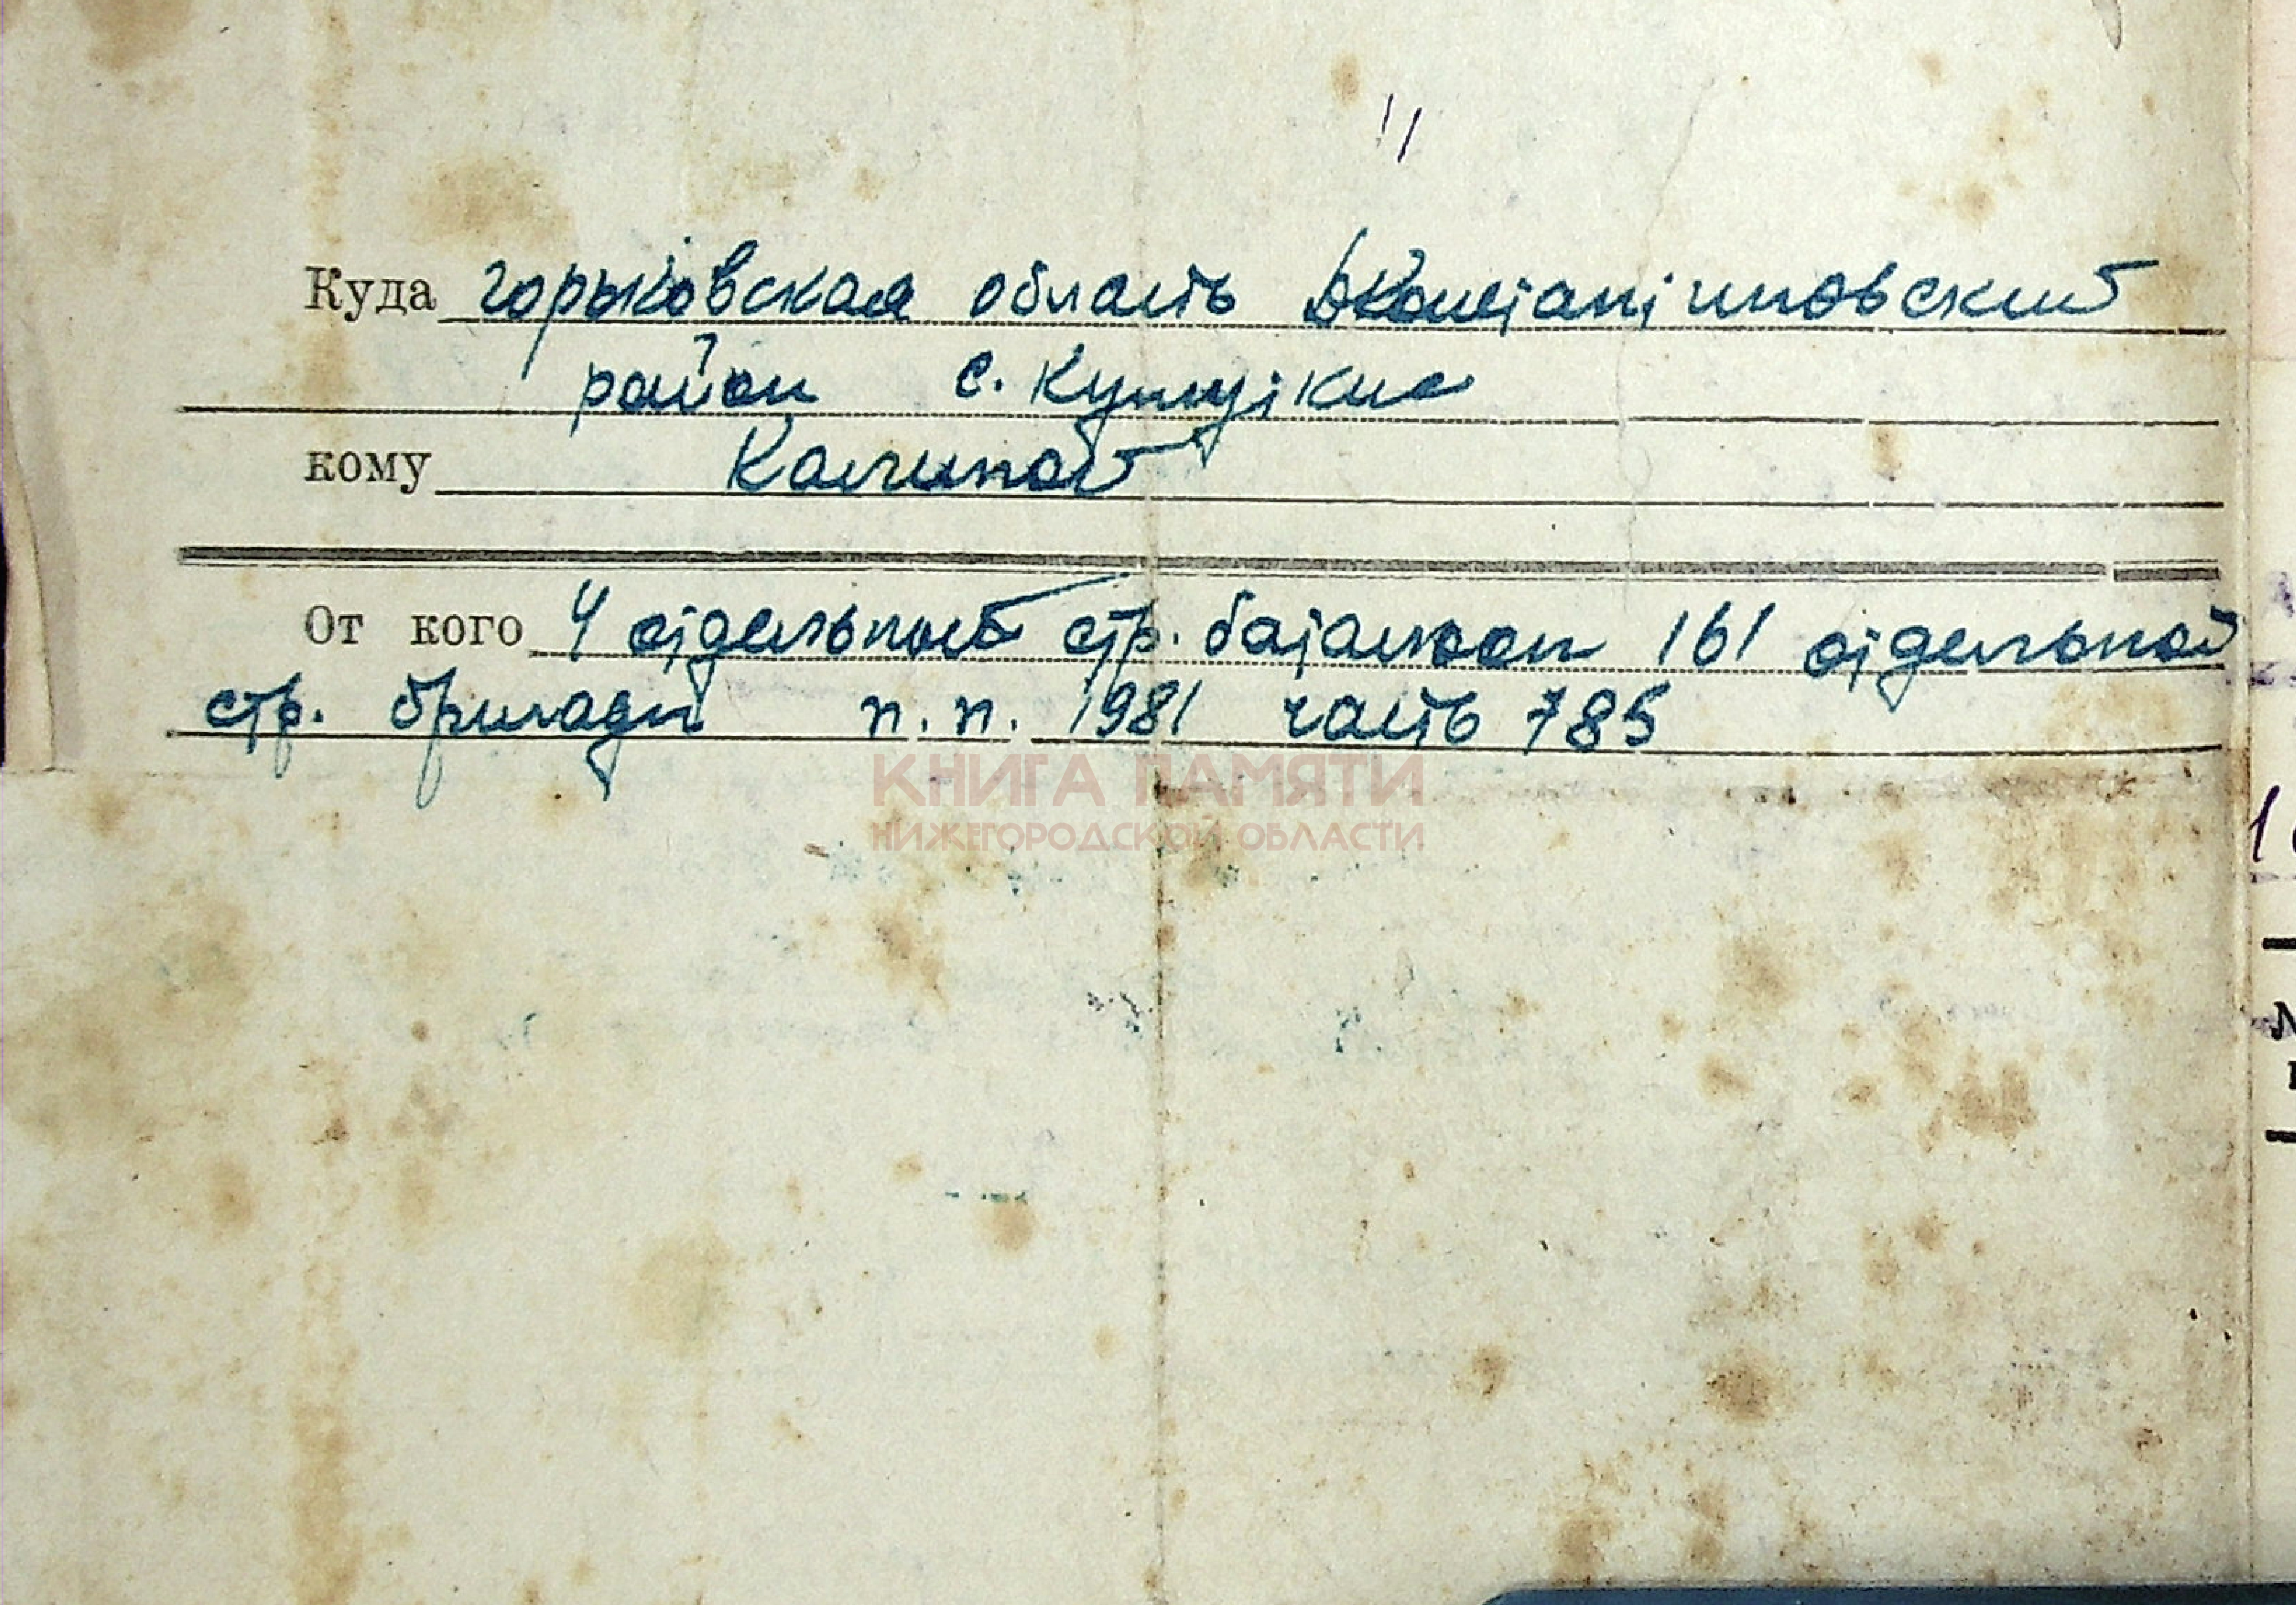 11
Куда горьковская область Д Константиновский
район с. Кушуткие
кому Калиной
От кого 4 отдельной стр. батальон 161 отдельной
стр. бригады п.п. 1981 часть 785
КНИГА ПАМЯТИ
НИЖЕГОРОДСКОЙ ОБЛАСТИ